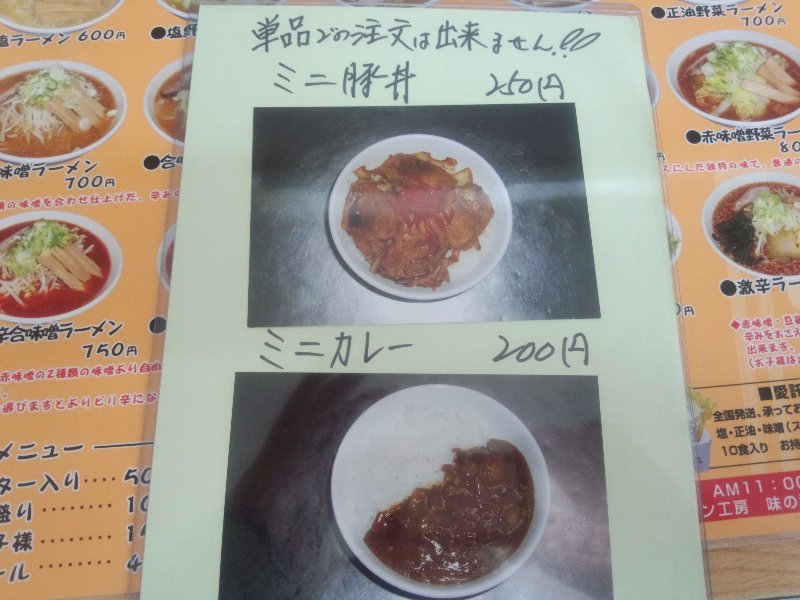 単品での注文は出来ません!!
ミニ豚丼 250円
ミニカレー 200円
ラーメン 600円
●塩野
味噌ラーメン
700円
●合
の味噌を合わせ仕上げた、辛みの
辛合味噌ラーメン
750円
赤味噌の2種類の味噌より自由
選びますとよりピリ辛にな
メニュー
ター入り‥‥50
盛り‥‥‥‥10
子様‥‥‥‥1
ール‥‥‥‥
●正油野菜ラーメン
700円
●赤味噌野菜ラー
80
スにした独特の味で、普通の
●激辛ラーメ
円
◆赤味噌・豆板
辛みをおさえ
出来ます。
(お子様は
■愛読
全国発送、承ってお
塩・正油・味噌(ス
10食入り お持
AM11:00
ン工房 味の